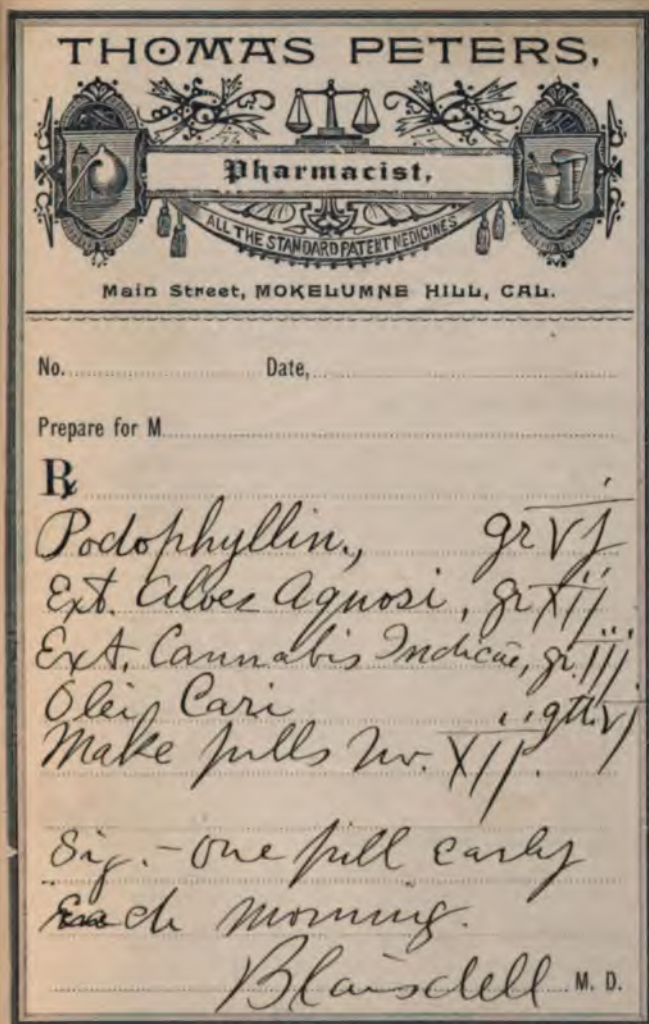 THOMAS PETERS,
Pharmacist,
ALL THE STANDARD PATENT MEDICINES
Main Street, MOKELUMNE HILL, CAL.
No. Date,
Prepare for M
Rx
Podophyllin., gr vj
Ext. Aloes Aquosi, gr xij
Ext. Cannabis Indicae, gr. iij
Olei Cari gtt. vj
Make pills No. XII.
Sig. - One pill early
Each morning.
Blaisdell M. D.